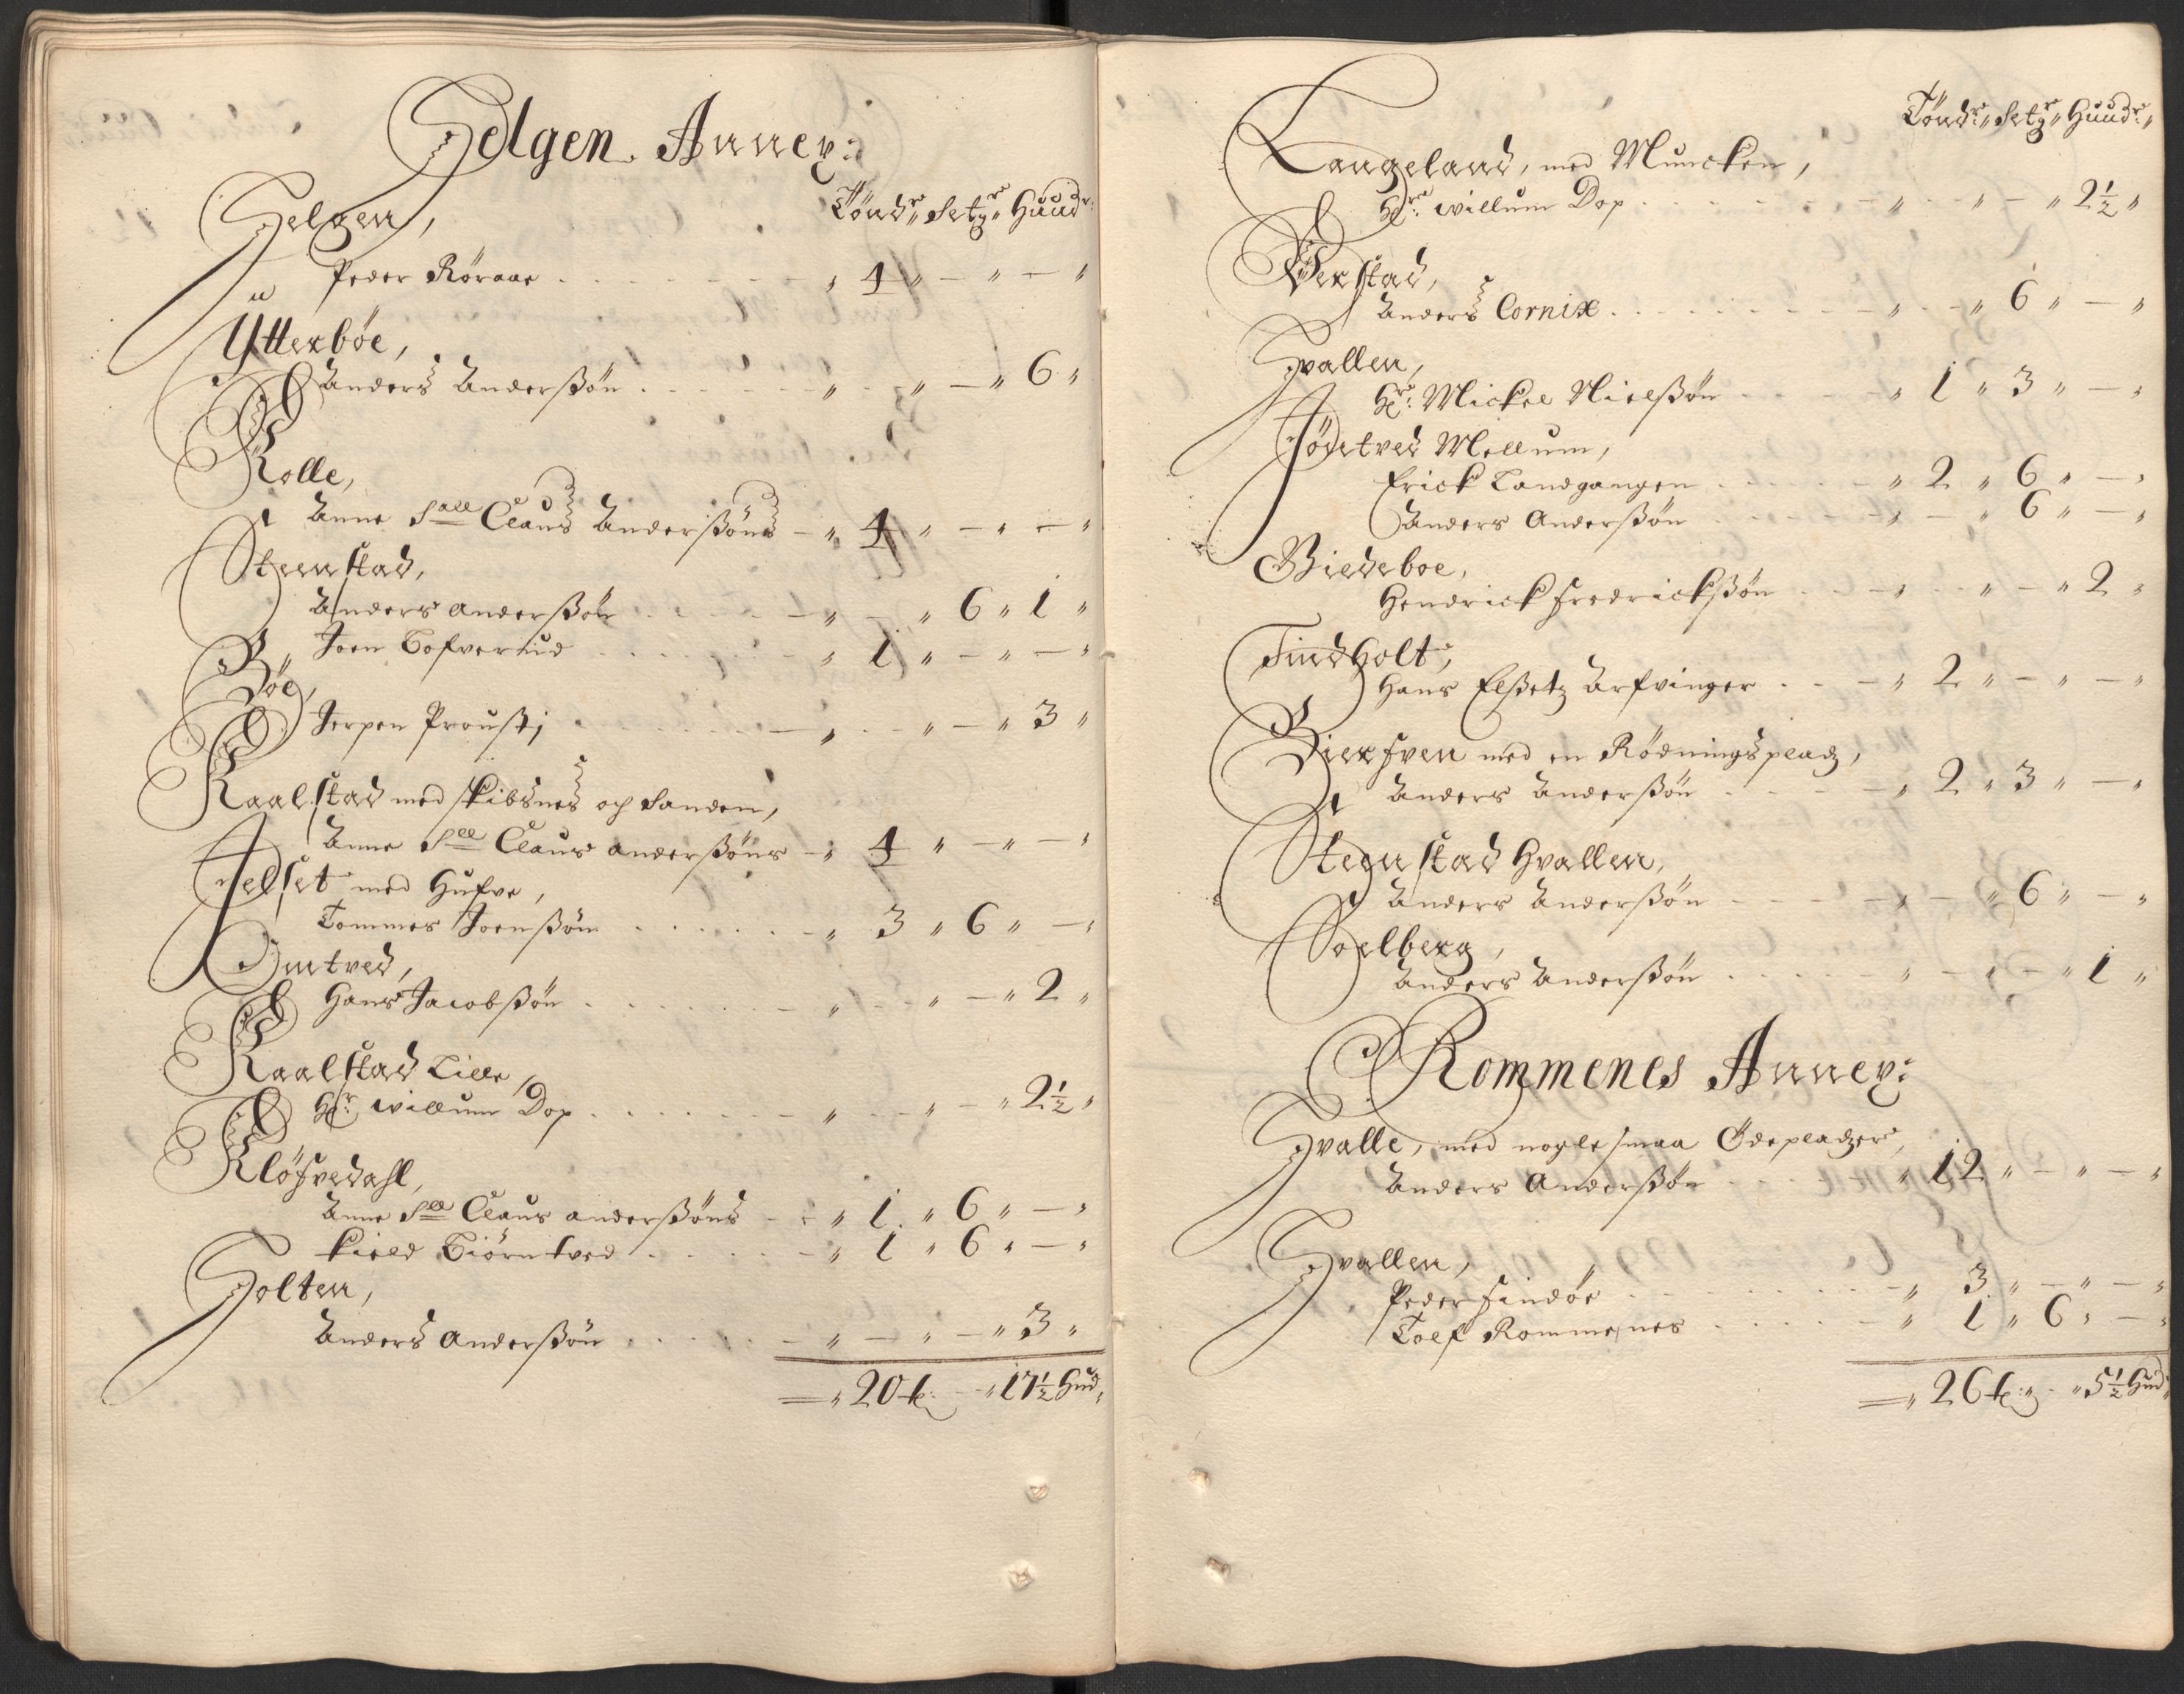 Helgen Annex:
Tønd:r Setg:r Huud:r
Helgen,
Peder Röraae . . . „ 4 „ — „ — „
Ytterböe,
Anders Anderßön . . . „ — „ — „ 6 „
Kolle,
Anne Sall Claus Anderßöns — „ 4 „ — „ — „
Steenstad,
Anders Anderßön . . . „ — „ 6 „ 1 „
Joen Tofverud . . . „ 1 „ — „ — „
Böe,
Jerpen Proustj . . . „ — „ — „ 3 „
Kaalstad med skibsnes och Sanden,
Anne Sll Claus anderßöns — „ 4 „ — „ — „
Jelset med Hufve,
Tommes Joenßön . . . „ 3 „ 6 „ — „
Omtved,
Hans Jacobßön . . . „ — „ — „ 2 „
Kaalstad Lille,
Hr: willum Dop . . . „ — „ — „ 2½ „
Klöfvedahl,
Anne Sll Claus anderßöns . . . „ 1 „ 6 „ — „
Kield Tiörntved . . . „ 1 „ 6 „ — „
Holten,
Anders Anderßön . . . „ — „ — „ 3 „
= „ 20 t: — „ 17½ Hud „
Tönd:r Setg:r Huud:r
Langeland, med Muncken,
Hr: willum Dop . . . „ — „ — „ 2½ „
Verstad,
Anders Cornix . . . „ — „ 6 „ — „
Hvallen,
Hr: Mickel Nielßön . . . „ 1 „ 3 „ — „
Jödetved Mellum,
Erick Landgangen . . . „ 2 „ 6 „ — „
Anders Anderßön . . . „ — „ 6 „ — „
Biedeboe,
Hendrick fredrickßön . . . „ — „ — „ 2 „
Findholt,
Hans Elßetz Arfvinger . . . „ 2 „ — „ — „
Bierfven med en Rödningspladz,
Anders Anderßön . . . „ 2 „ 3 „ — „
Steenstad Hvallen,
Anders Anderßön . . . „ — „ 6 „ — „
Soelberg,
Anders Anderßön . . . „ — „ — „ 1 „
Rommenes Annex:
Hvalle, med nogle smaa Ödepladzer,
Anders Anderßön . . . „ 12 „ — „ — „
Hvallen,
Peder findöe . . . „ 3 „ — „ — „
Toef Rommenes . . . „ 1 „ 6 „ — „
= „ 26 t: „ „ 5½ Hud „